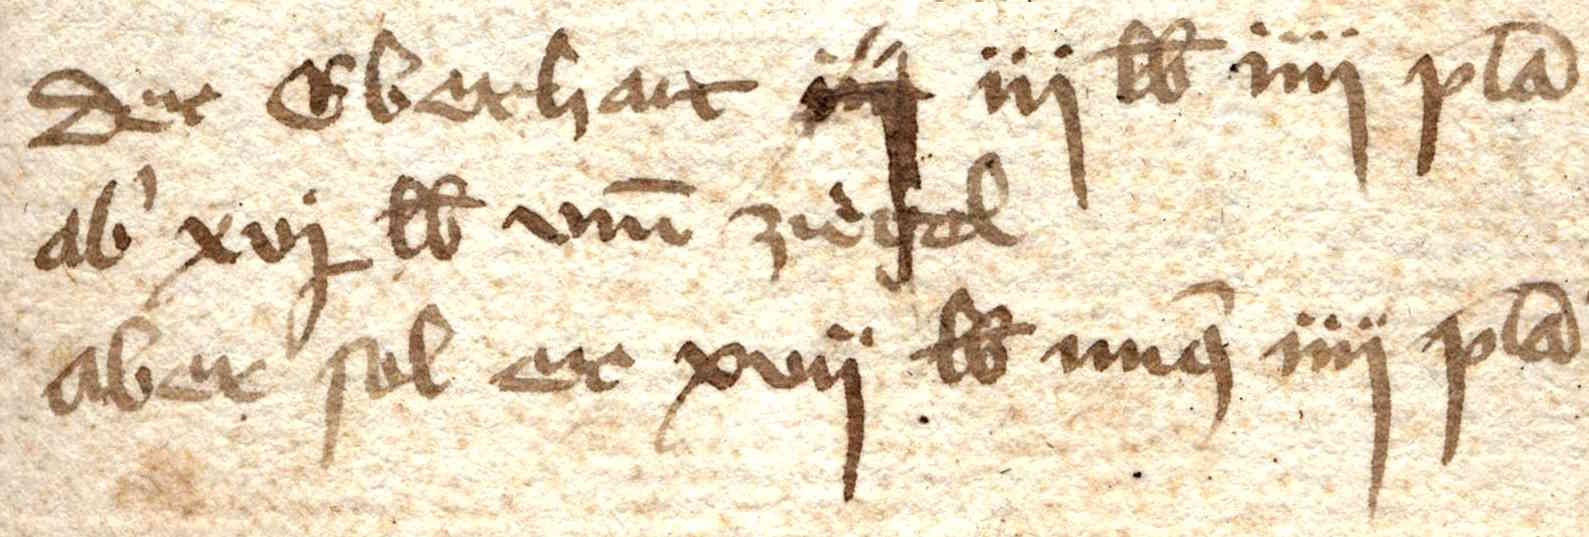 Der Eberhart iij lb iiij pla
ab' xvj lb vm̄ ziegel
aber sol er xvij lb minq̄ iiij pla